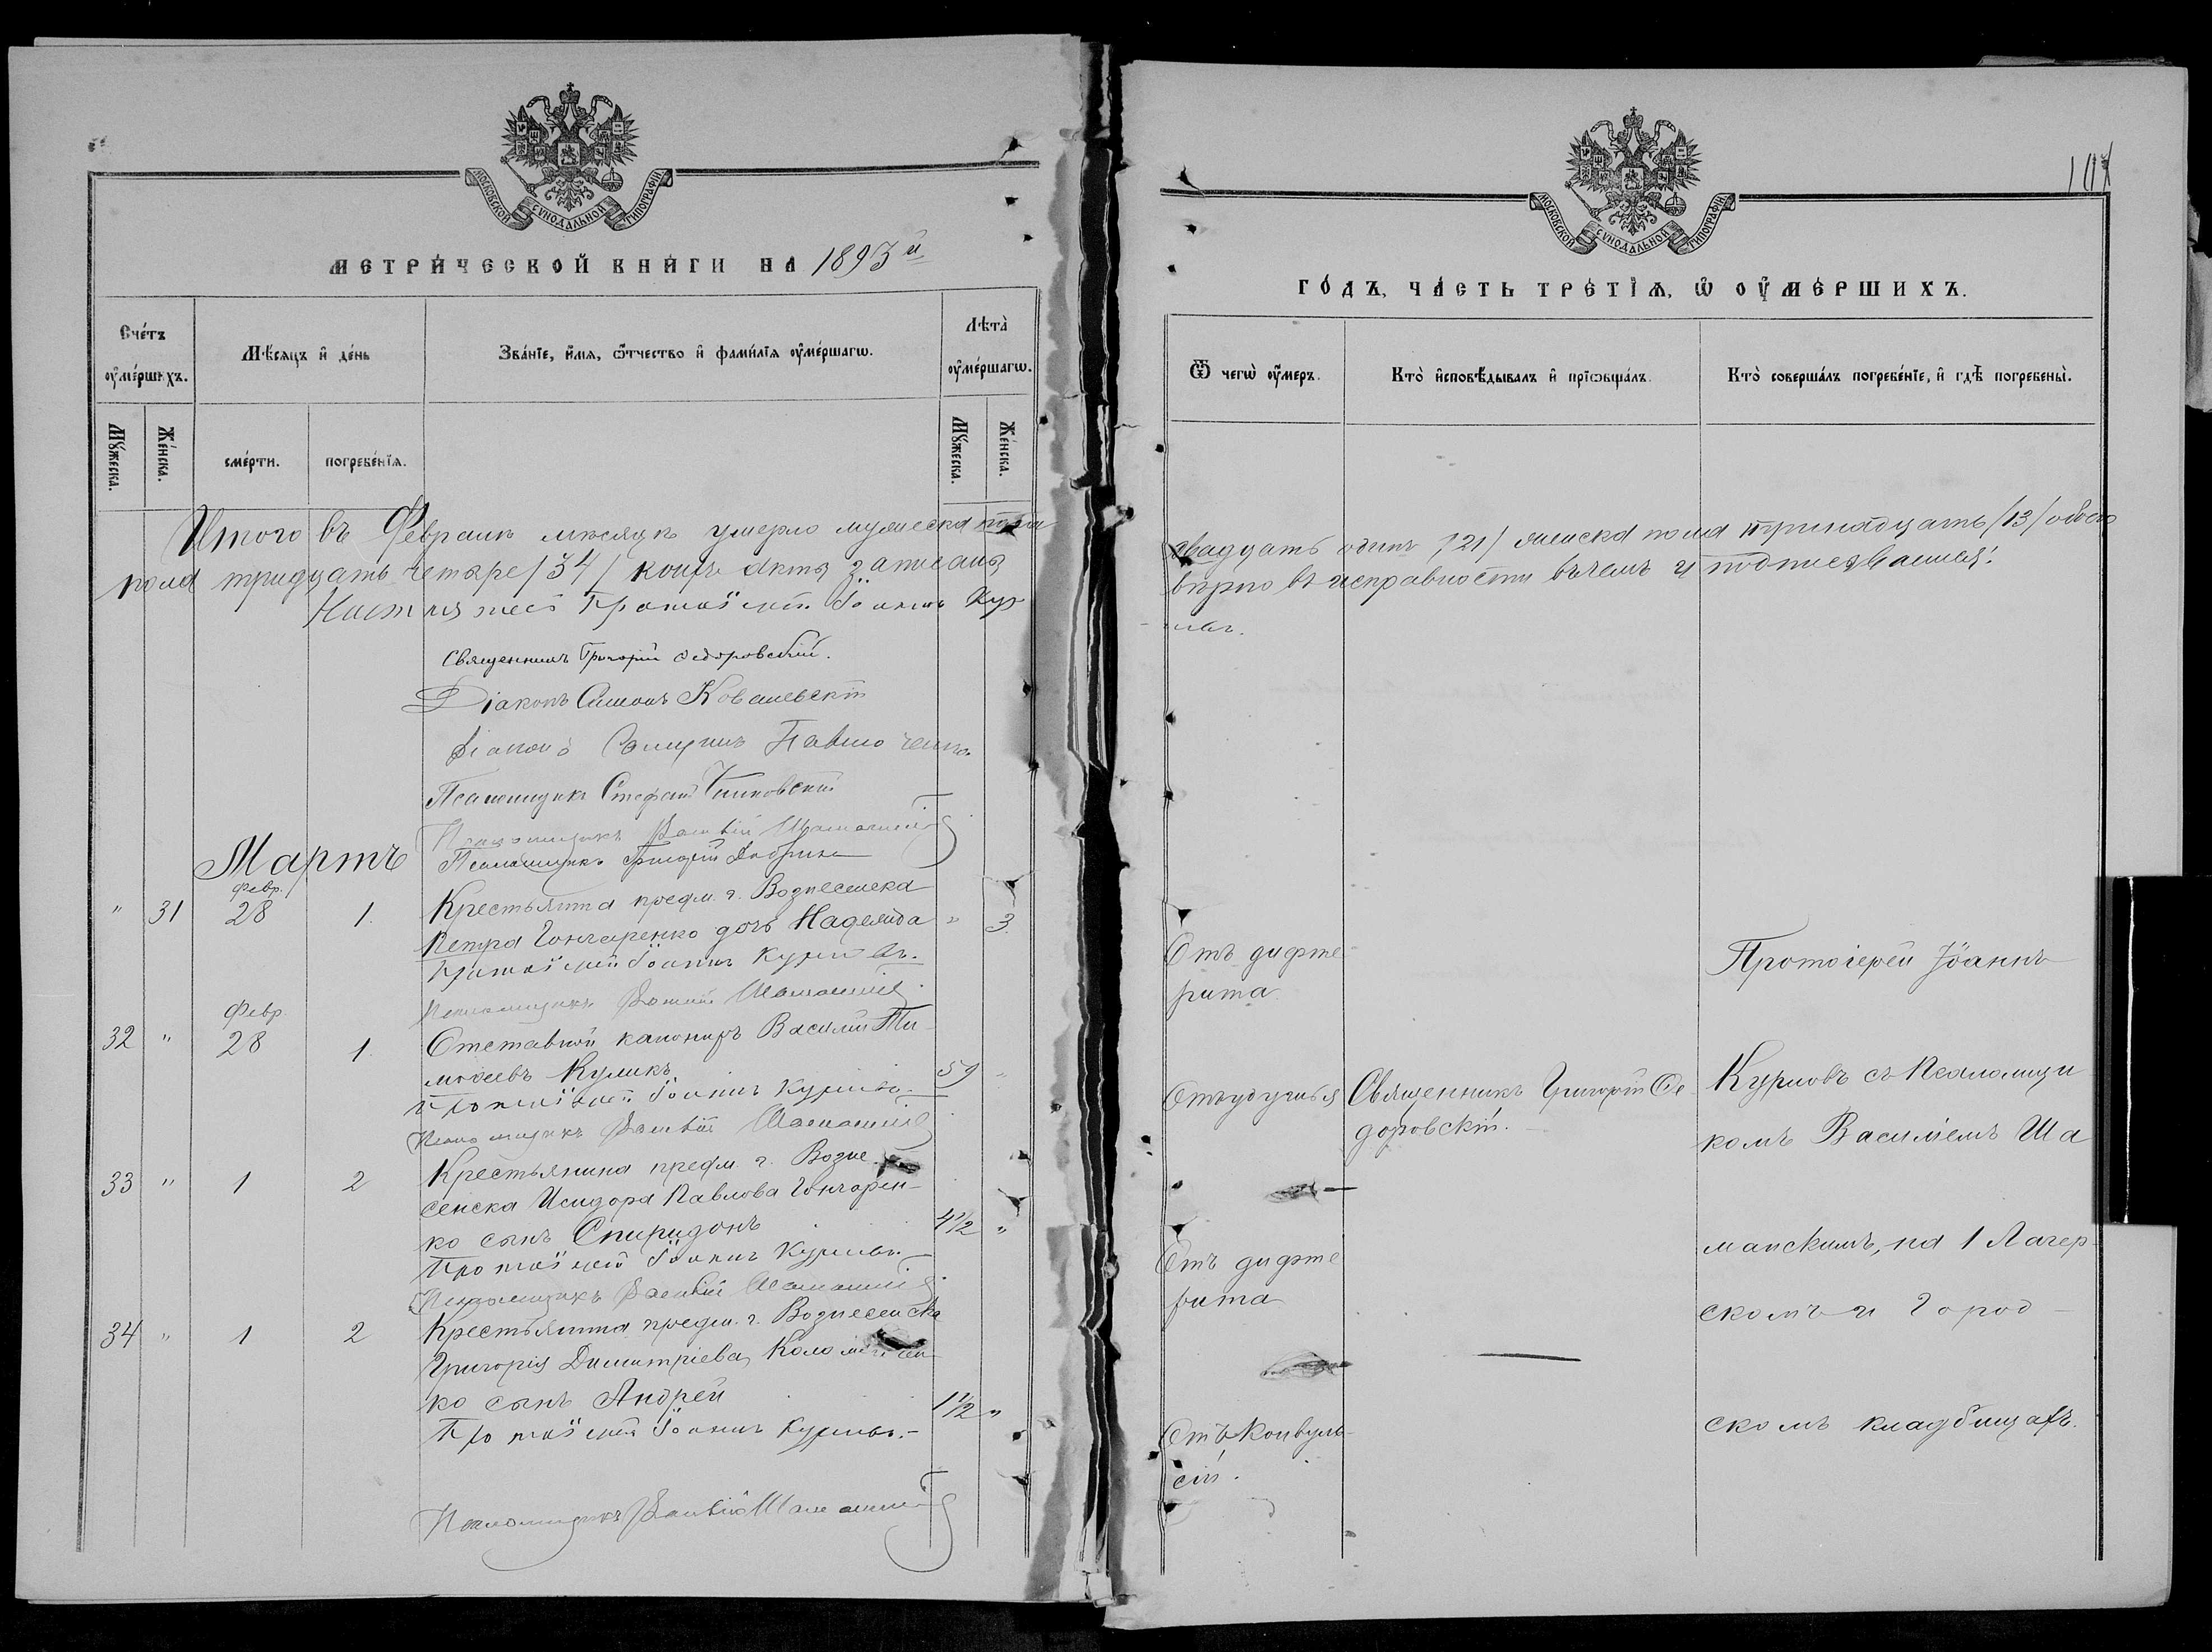 МОСКОВСКОЙ СѴНОДАЛЬНОЙ ТИПОГРАФІИ
МЕТРИЧЕСКОЙ КНИГИ НА 1893й
Счетъ оумершихъ.
Мѣсяцъ и день
Званіе, имя, ѿчество и фамилія оумершагѡ.
Лѣта оумершагѡ.
Мужеска.
Женска.
смерти.
погребенія.
Мужеска.
Женска.
Итого въ Февралѣ мѣсяцѣ умерло мужеска пола
пола тридцать четыре /34/
Протоіерей Іоаннъ Кур
Священникъ Григорій Ѳедоровскій.
Діаконъ Симонъ Ковалевскій
Діаконъ Павлю
Псаломщикъ Стефанъ
Псаломщикъ Василій Шаманскій
Псаломщикъ Григорій
Мартъ
Февр.
" 31 28 1. Крестьянина предм. г. Вознесенска
Петра Гончаренко дочь Надежда " 3.
Протоіерей Іоаннъ Курловъ.
Псаломщикъ Василій Шаманскій
Февр
32 " 28 1. Отставной канониръ Василій Ти-
моѳеевъ Куликъ 59 "
Протоіерей Іоаннъ Курловъ.
Псаломщикъ Василій Шаманскій
33 " 1 2 Крестьянина предм. г. Возне-
сенска Исидора Павлова Гончарен-
ко сынъ Спиридонъ 4½ "
Протоіерей Іоаннъ Курловъ.
Псаломщикъ Василій Шаманскій
34 " 1 2 Крестьянина предм. г. Вознесенска
Григорія Димитріева
ко сынъ Андрей 1½ "
Протоіерей Іоаннъ Курловъ.
Псаломщикъ Василій Шаманскій
107
МОСКОВСКОЙ СѴНОДАЛЬНОЙ ТИПОГРАФІИ
ГОДЪ, ЧАСТЬ ТРЕТІѦ, Ѡ ОУМЕРШИХЪ.
Ѿ чегѡ оумеръ.
Кто исповѣдывалъ и пріобщалъ.
Кто совершалъ погребеніе, и гдѣ погребены.
двадцать одинъ /21/ женска пола тринадцать /13/ обоего
вѣрно въ исправности въ чемъ и подписываемся:
ловъ.
Отъ дифте
рита
Протоіерей Іоаннъ
Отъ удушья
Священникъ Григорій Ѳе
доровскій.
Курловъ съ Псаломщи
комъ Василіемъ Ша
Отъ дифте
рита
манскимъ, на 1 Лагер-
скомъ и Город-
Отъ конвуль-
сій.
скомъ кладбищахъ.